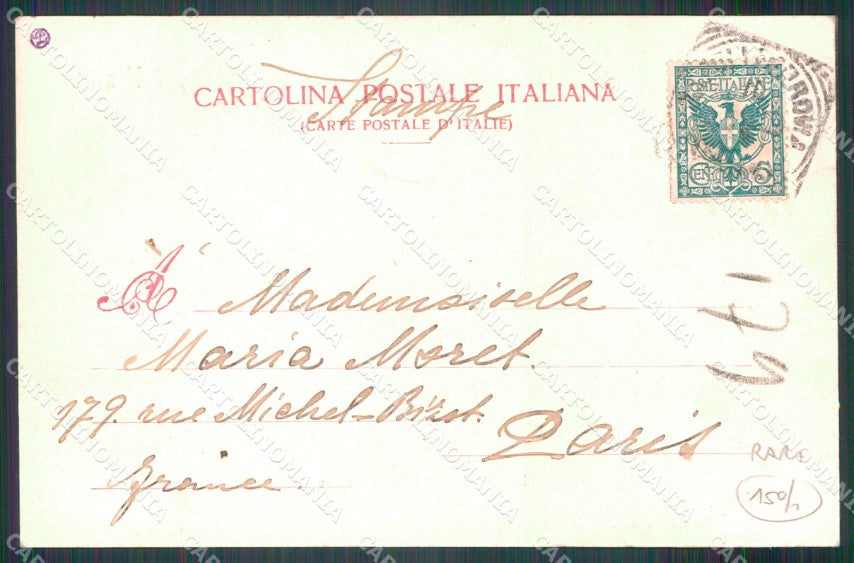 CARTOLINA POSTALE ITALIANA
Stampe
(CARTE POSTALE D'ITALIE)
POSTE ITALIANE
CEN 5
ROMA
A
À Mademoiselle
Maria Moret.
179. rue Michel-Bizot.
Paris
France
179
RARO
150/
CARTOLINOMANIA